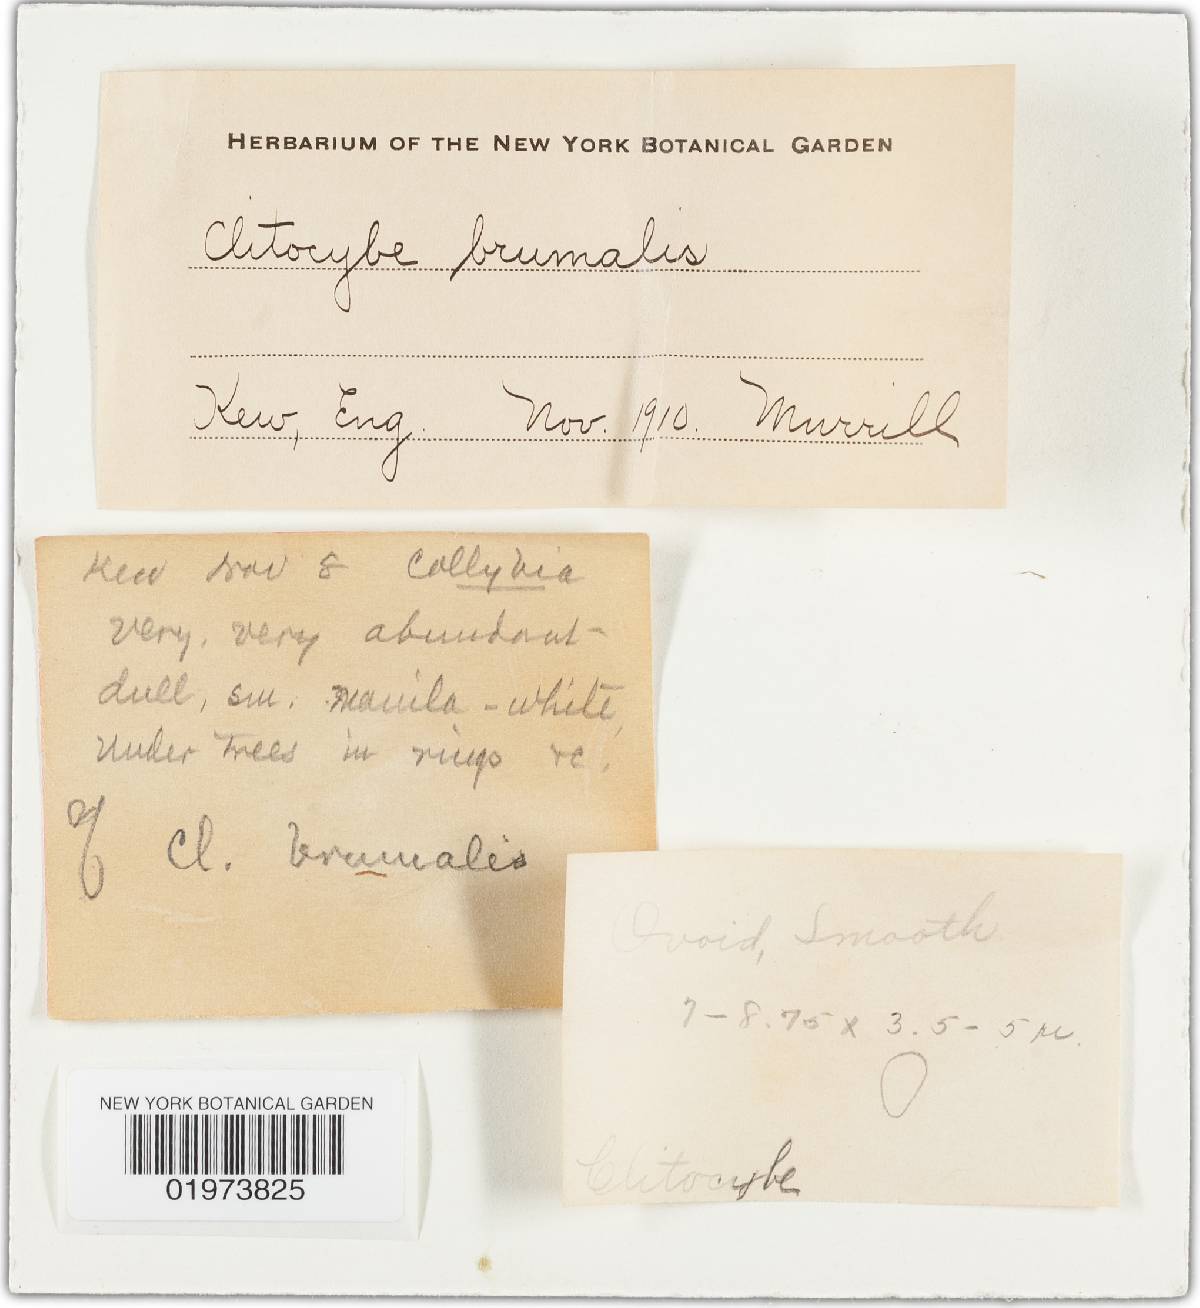 HERBARIUM OF THE NEW YORK BOTANICAL GARDEN
Clitocybe brumalis
Kew, Eng. Nov. 1910. Murrill
Kew Nov 8 Collybia
very, very abundant-
dull, sm. manila-white,
under trees in rings &c.
Cl. brumalis
Ovoid, Smooth
7-8.75 x 3.5-5 µ.
Clitocybe
NEW YORK BOTANICAL GARDEN
01973825